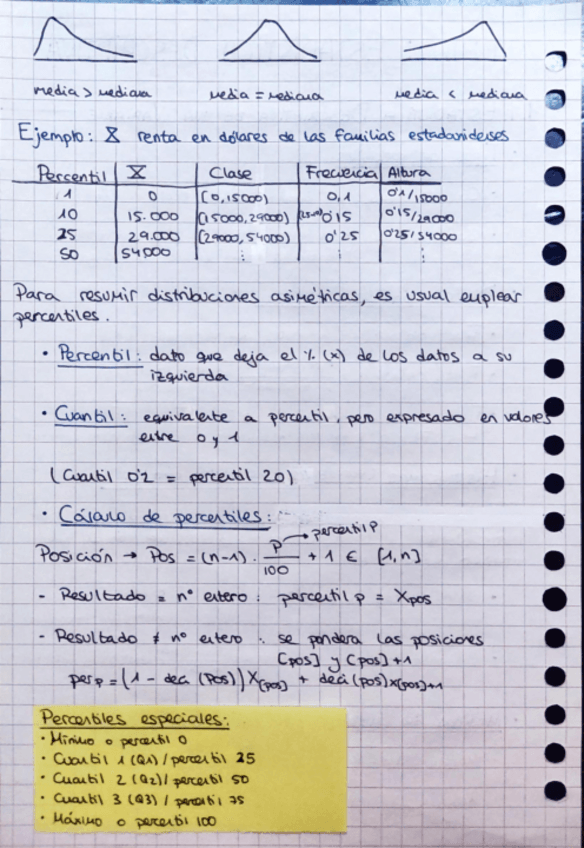 media > mediana media = mediana media < mediana
Ejemplo: X renta en dólares de las familias estadounidenses
Percentil X Clase Frecuencia Altura
1 0 (0,15000) 0,1 0'1/15000
10 15.000 (15000,29000) 0'15 0'15/29000
25 29.000 (29000,54000) 0'25 0'25/54000
50 54000 ⋮ ⋮ ⋮
Para resumir distribuciones asimétricas, es usual emplear
percentiles.
• Percentil: dato que deja el % (x) de los datos a su
izquierda
• Cuantil: equivalente a percentil, pero expresado en valores
entre 0 y 1
(Cuantil 0'2 = percentil 20)
• Cálculo de percentiles:
Posición → Pos = (n-1) · P/100 + 1 ∈ [1,n] → percentil P
- Resultado = nº entero : percentil p = Xpos
- Resultado ≠ nº entero : se pondera las posiciones
[pos] y [pos]+1
perp = (1 - deci (Pos)) X[pos] + deci (pos) x[pos]+1
Percentiles especiales:
• Mínimo o percentil 0
• Cuartil 1 (Q1) / percentil 25
• Cuartil 2 (Q2) / percentil 50
• Cuartil 3 (Q3) / percentil 75
• Máximo o percentil 100